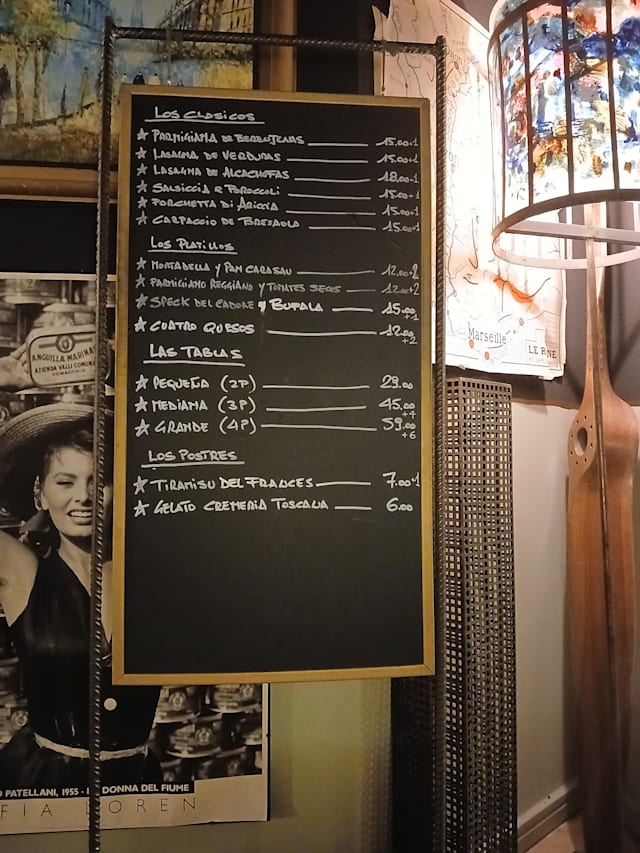 LOS CLASICOS
★ PARMIGIANA DE BERENJENAS 15.00+1
★ LASAGNA DE VERDURAS 15.00+1
★ LASAGNA DE ALCACHOFAS 18.00+1
★ SALSICCIA e BROCCOLI 15.00+1
★ PORCHETTA DI ARICCIA 15.00+1
★ CARPACCIO DE BRESAOLA 15.00+1
LOS PLATILLOS
★ MORTADELLA y PAN CARASAU 12.00+2
★ PARMIGIANO REGGIANO y TOMATES SECOS 12.00+2
★ SPECK DEL CADORE y BUFALA 15.00
+1
★ CUATRO QUESOS 12.00
+2
LAS TABLAS
★ PEQUEÑA (2P) 29.00
★ MEDIANA (3P) 45.00
+4
★ GRANDE (4P) 59.00
+6
LOS POSTRES
★ TIRAMISU DEL FRANCES 7.00+1
★ GELATO CREMERIA TOSCANA 6.00
ANGUILLA MARINATA
AZIENDA VALLI COMUNALI
COMACCHIO
Marseille
LE RNE
PATELLANI, 1955 - LA DONNA DEL FIUME
FIA LOREN